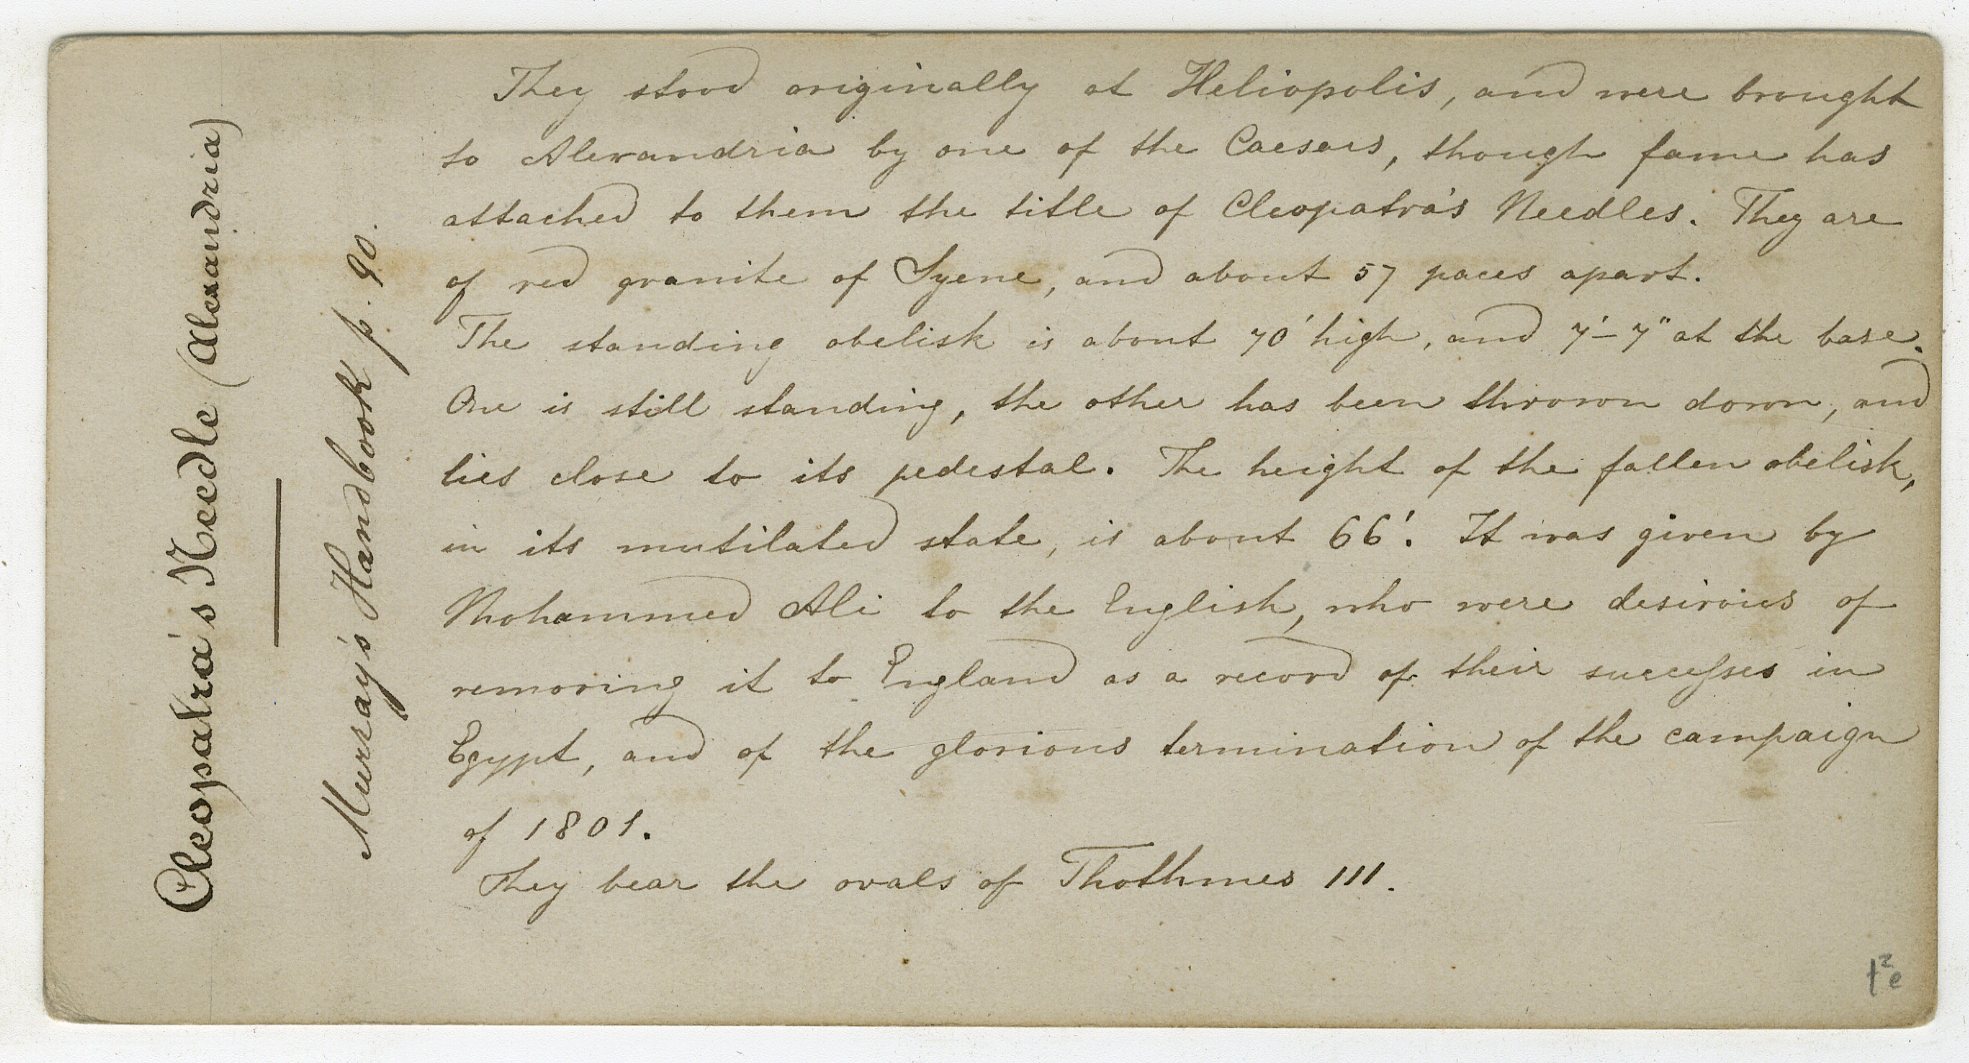 Cleopatra's Needle (Alexandria)
Murray's Handbook p. 90.
They stood originally at Heliopolis, and were brought
to Alexandria by one of the Caesars, though fame has
attached to them the title of Cleopatra's Needles. They are
of red granite of Syene, and about 57 paces apart.
The standing obelisk is about 70' high, and 7'–7" at the base.
One is still standing, the other has been thrown down, and
lies close to its pedestal. The height of the fallen obelisk,
in its mutilated state, is about 66'. It was given by
Mohammed Ali to the English, who were desirous of
removing it to England as a record of their successes in
Egypt, and of the glorious termination of the campaign
of 1801.
They bear the ovals of Thothmes III.